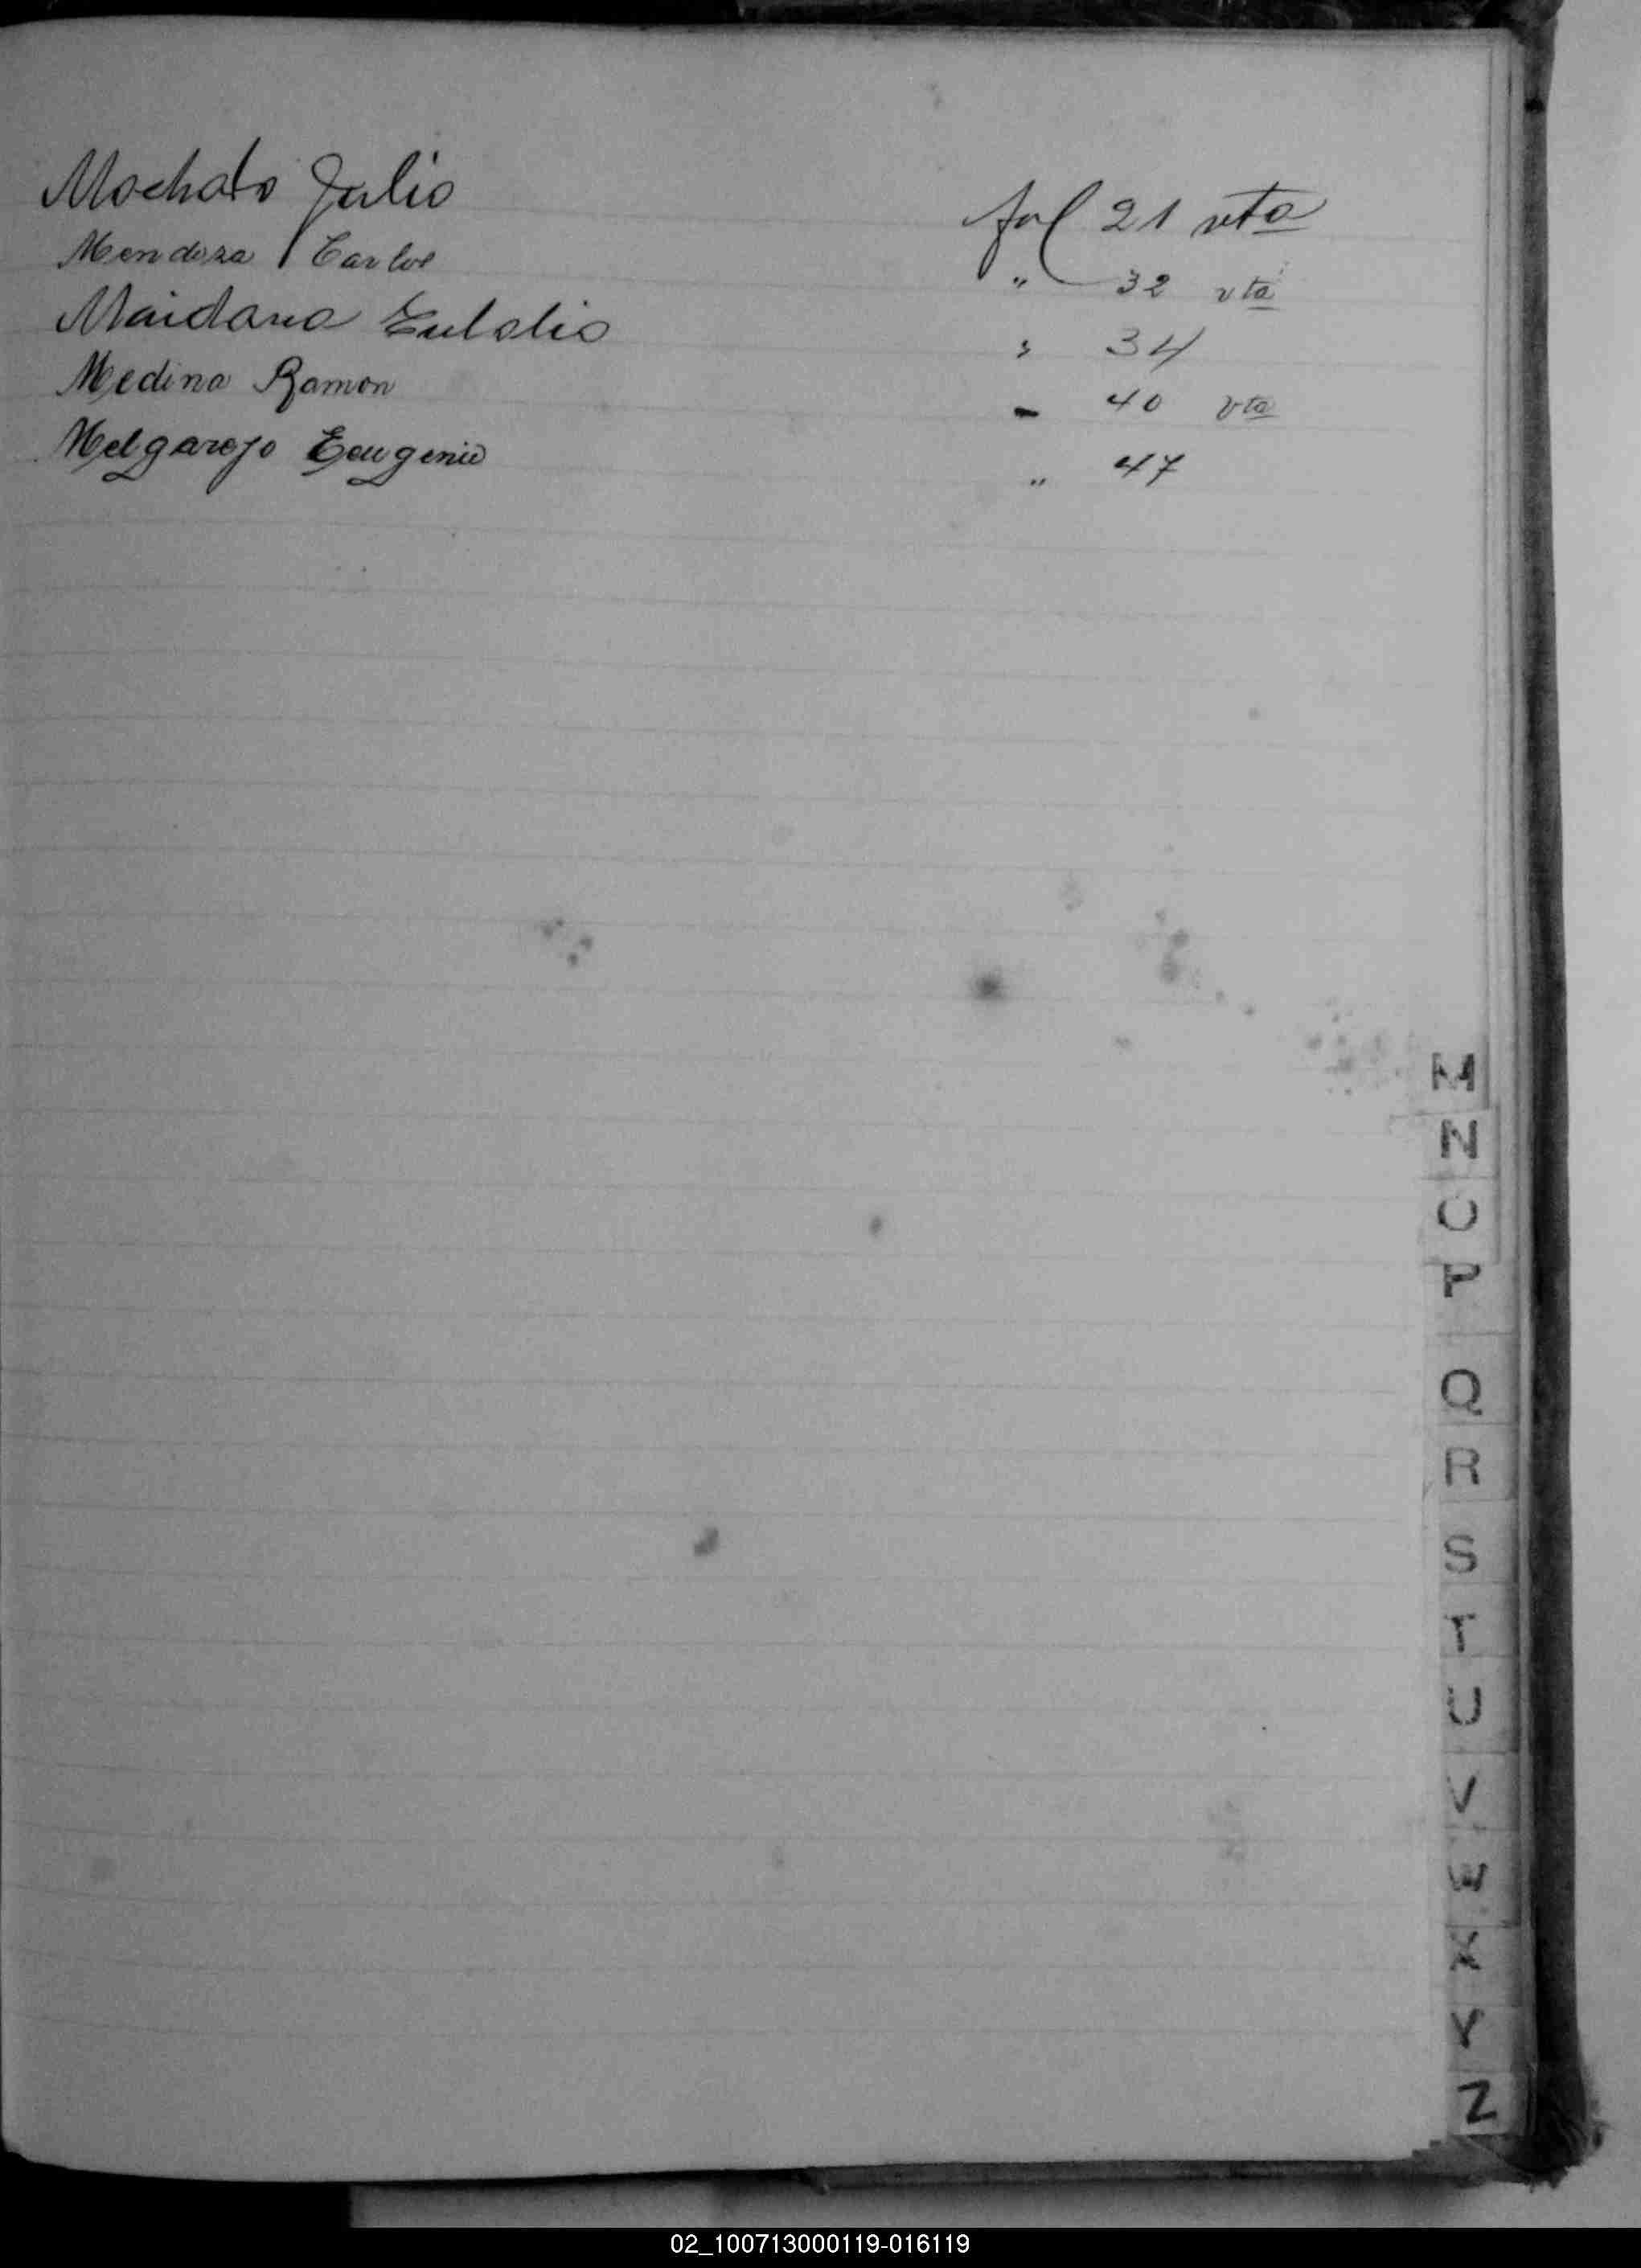 Machado Julio fol 21 vta
Mendoza Carlos " 32 vta
Maidana Eulalio " 34
Medina Ramon - 40 vta
Melgarejo Eeugenio " 47
M
N
O
P
Q
R
S
T
U
V
W
X
Y
Z
02_100713000119-016119